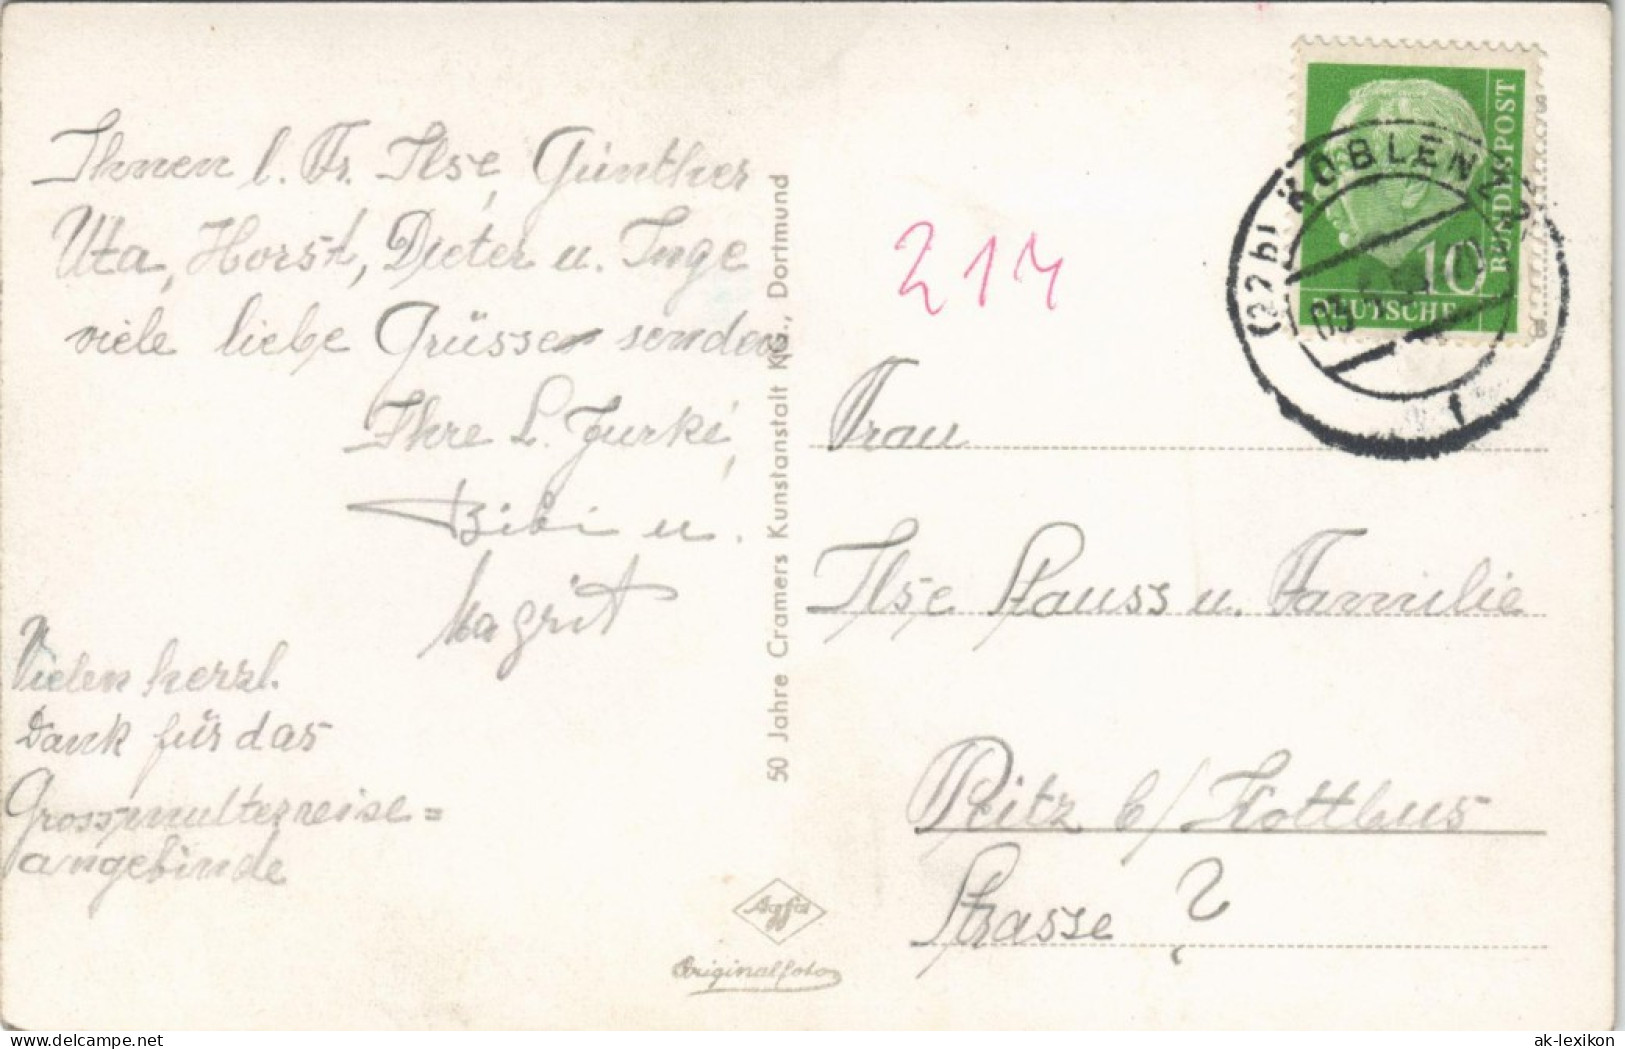 Ihnen l. Fr. Ilse, Günther
Uta, Horst, Dieter u. Inge
viele liebe Grüsse senden
Ihre L. Jurke,
Bibi u.
Magrit
Vielen herzl.
Dank für das
Grossmutterreise=
angebinde
50 Jahre Cramers Kunstanstalt KG., Dortmund
Agfa
Originalfoto
214
BUNDESPOST
10
DEUTSCHE
(22b) KOBLENZ
Frau
Ilse Stauss u. Familie
Peitz b/ Kottbus
Strasse ?
www.ansichtskarten-lexikon.de
ak-lexikon